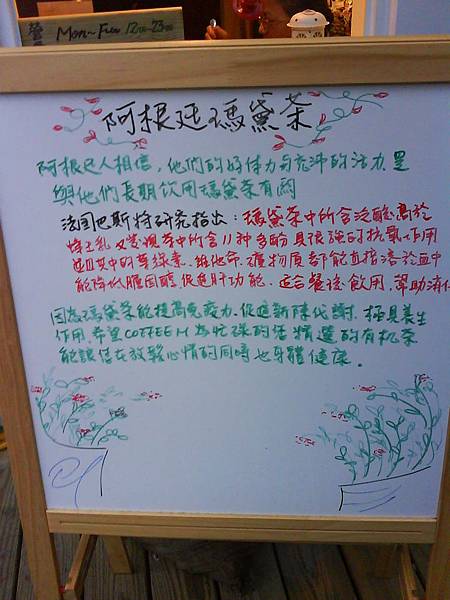 營 Mon~Fri 12:00~23:00
阿根廷瑪黛茶
阿根廷人相信，他們的好体力与充沛的活力，是
與他們長期飲用瑪黛茶有関
法国巴斯特研究指出：瑪黛茶中所含泛酸高於
蜂王乳 又發現茶中所含11种多酚具很強的抗氧作用
並且其中的葉綠素、維他命、礦物质都能直接溶於血中
能降低膽固醇、促進肝功能、适合餐後飲用，幫助消化
因為瑪黛茶能提高免疫力、促進新陳代謝、極具養生
作用、希望COFFEE M 為忙碌的生活精選的有机茶
能讓您在放鬆心情的同時也身體健康．